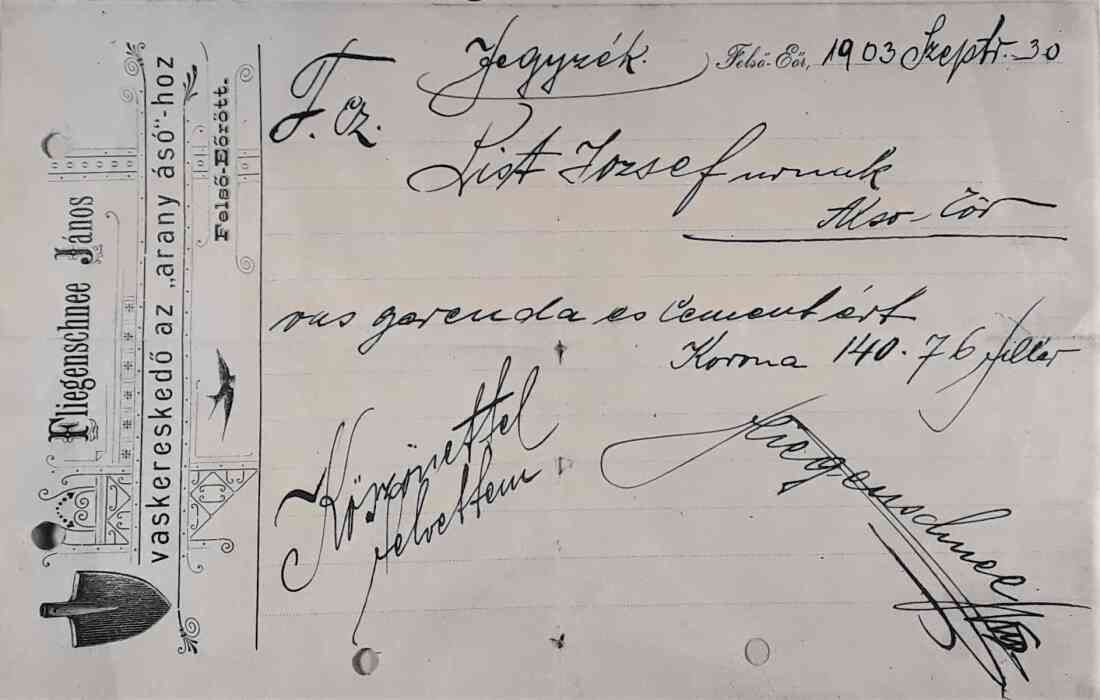 Fliegenschnee János
vaskereskedő az „arany ásó"-hoz
Felső-Eőrött.
Jegyzék.
Felső-Eőr, 1903 Szeptr. 30
T. cz.
List József urnak
Alsó-Eör
vas gerenda es Cement ért
Korona 140.76 fillér
Köszönettel
felvettem
Fliegenschnee